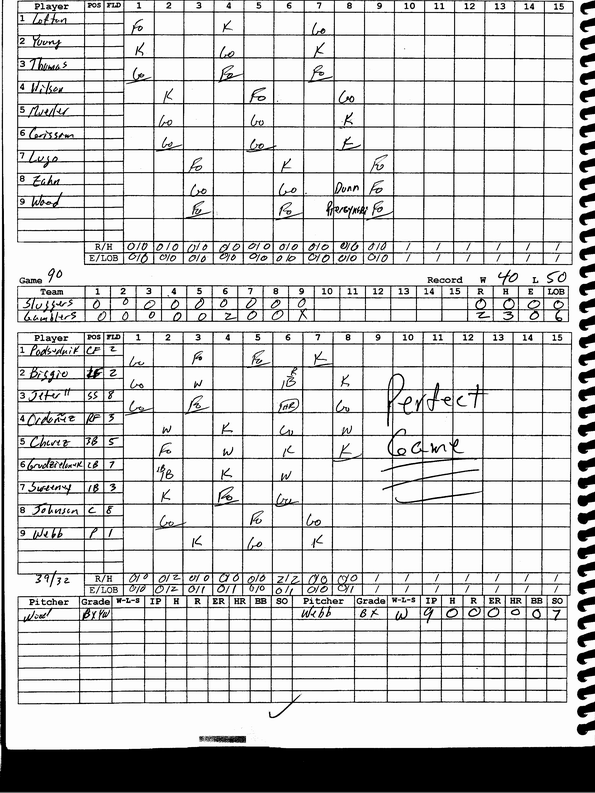 Player POS FLD 1 2 3 4 5 6 7 8 9 10 11 12 13 14 15
1 Lofton Fo K Go
2 Young K Go K
3 Thomas Go Fo Fo
4 Wilson K Fo Go
5 Mueller Go Go K
6 Go Go K
7 Lugo Fo K Fo
8 Zahn Go Go Dunn Fo
9 Wood Fo Fo Pierzynski Fo
R/H 0/0 0/0 0/0 0/0 0/0 0/0 0/0 0/0 0/0 / / / / / /
E/LOB 0/0 0/0 0/0 0/0 0/0 0/0 0/0 0/0 0/0 / / / / / /
Game 90 Record W 40 L 50
Team 1 2 3 4 5 6 7 8 9 10 11 12 13 14 15 R H E LOB
Sluggers 0 0 0 0 0 0 0 0 0 0 0 0 0
Gamblers 0 0 0 0 0 2 0 0 X 2 3 0 6
Player POS FLD 1 2 3 4 5 6 7 8 9 10 11 12 13 14 15
1 Podsednik CF 2 Go Fo Fo K
2 Biggio 2 Go W 1B R K
3 Jeter SS 8 Go Fo HR Go
4 Ordoñez RF 3 W K Go W
5 Chavez 3B 5 Fo W K K
6 Grudzielanek 2B 7 1B K W
7 Sweeney 1B 3 K Fo Go
8 Johnson C 8 Go Fo Go
9 Webb P 1 K Go K
Perfect
Game
39/32 R/H 0/0 0/2 0/1 0/0 0/0 2/2 0/0 0/0 / / / / / / /
E/LOB 0/0 0/2 0/1 0/1 0/0 0/1 0/0 0/1 / / / / / / /
Pitcher Grade W-L-S IP H R ER HR BB SO Pitcher Grade W-L-S IP H R ER HR BB SO
Wood Webb BX W 9 0 0 0 0 0 7